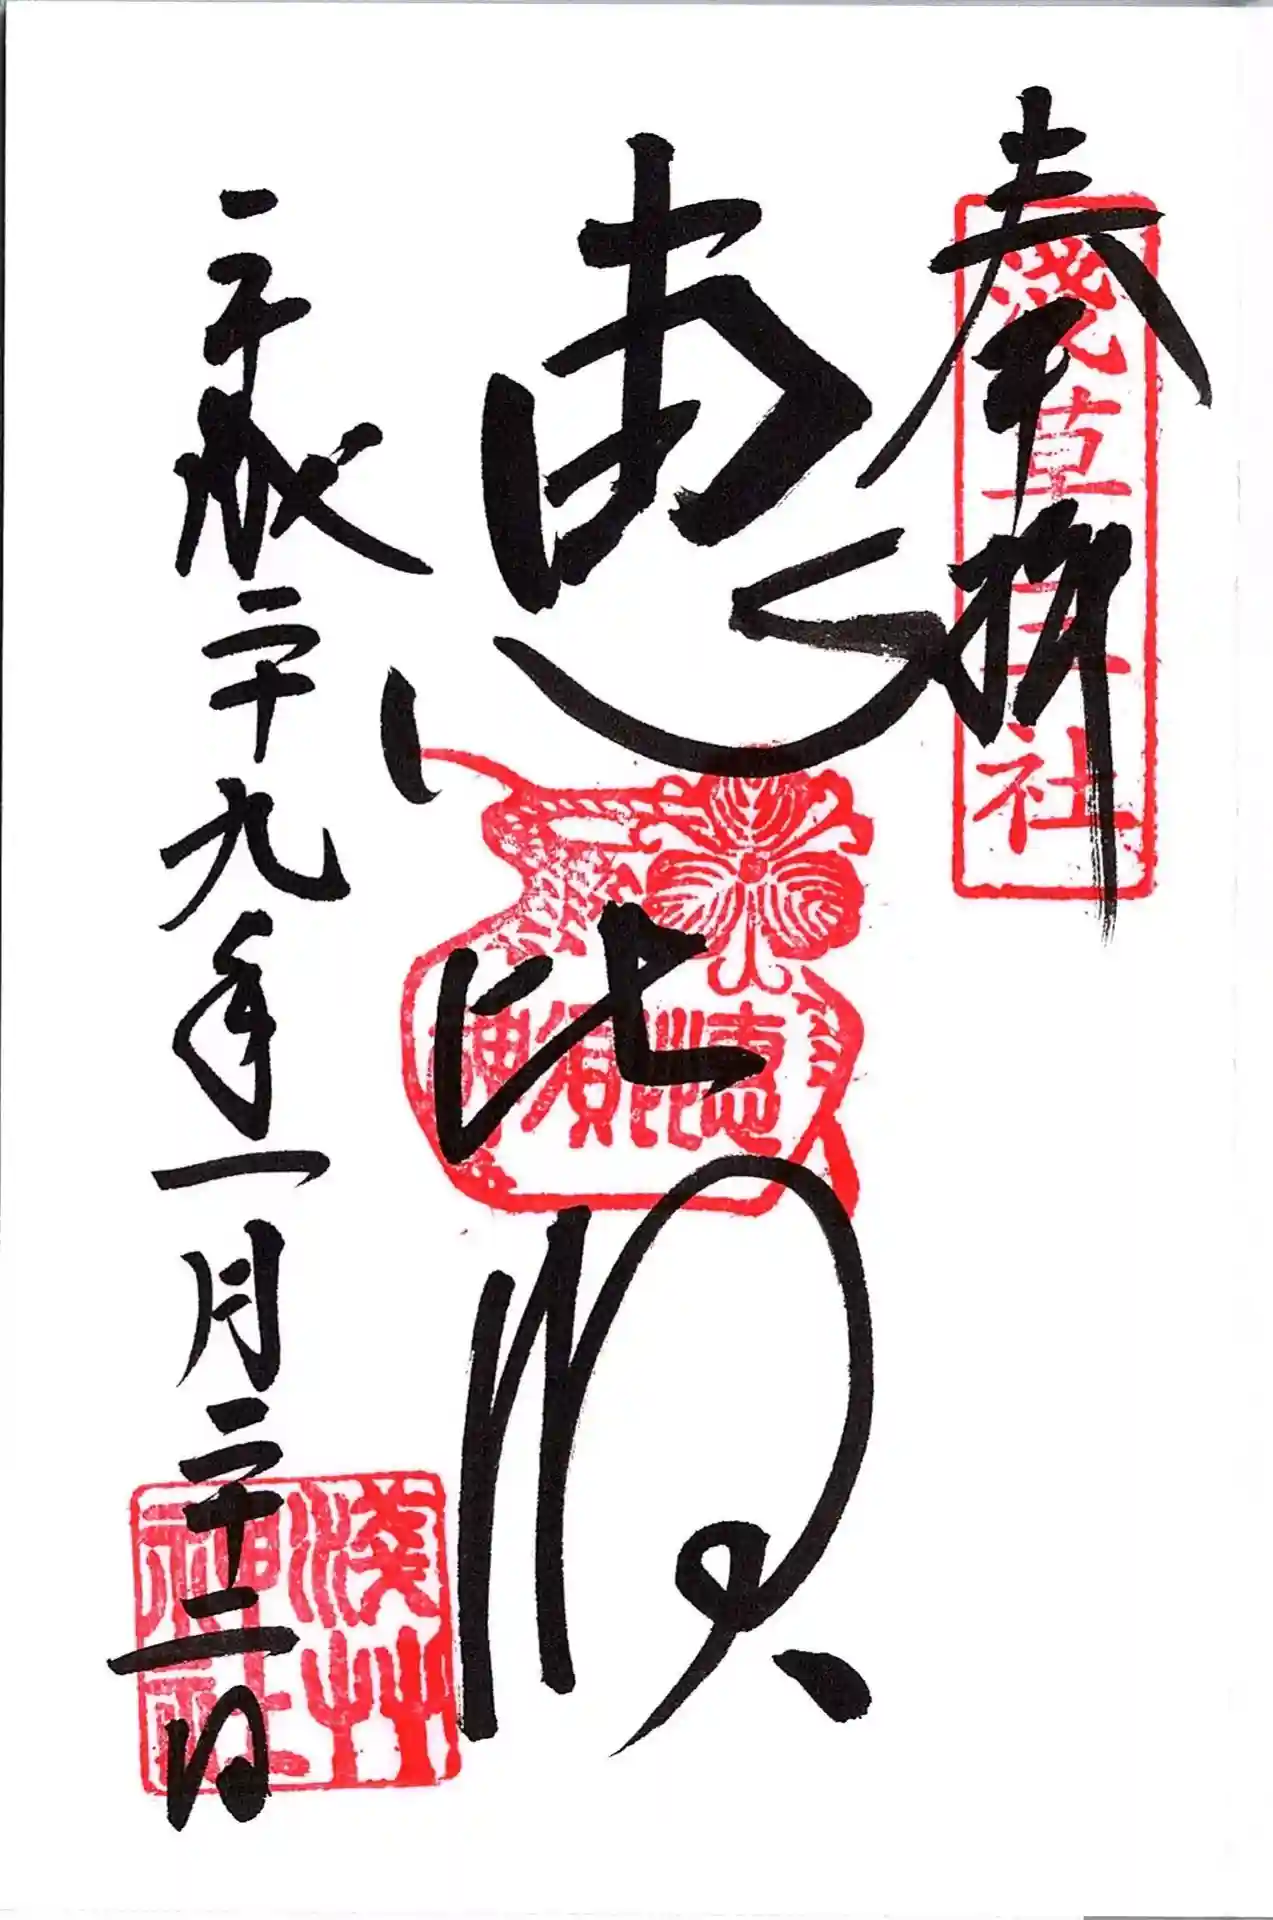 奉拝
淺草三社
恵比須
恵比須神
平成二十九年一月二十二日
淺艸神社